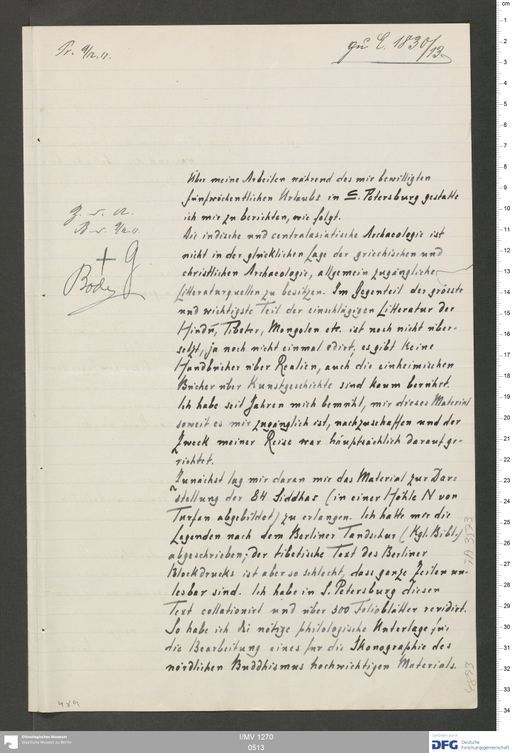 Pr. 9/12. 11.
zu E. 1830/13.
z. d. A.
Bode
G
Über meine Arbeiten während des mir bewilligten
fünfwöchentlichen Urlaubs in S. Petersburg gestatte
ich mir zu berichten, wie folgt.
Die indische und centralasiatische Archaeologie ist
nicht in der glücklichen Lage der griechischen und
christlichen Archaeologie, allgemein zugängliche
Litteraturquellen zu besitzen. Im Gegenteil der grösste
und wichtigste Teil der einschlägigen Litteratur der
Hindū, Tibeter, Mongolen etc. ist noch nicht über-
setzt, ja noch nicht einmal edirt, es gibt keine
Handbücher über Realien, auch die einheimischen
Bücher über Kunstgeschichte sind kaum berührt.
Ich habe seit Jahren mich bemüht, mir dieses Material
soweit es mir zugänglich ist, nachzuschaffen und der
Zweck meiner Reise war häuptsächlich darauf ge-
richtet.
Zunächst lag mir daran mir das Material zur Dar-
stellung der 84 Siddhas (in einer Höhle N von
Turfan abgebildet) zu erlangen. Ich hatte mir die
Legenden nach dem Berliner Tandschur (Kgl. Bibl.)
abgeschrieben; der tibetische Text des Berliner
Blockdrucks ist aber so schlecht, dass ganze Zeilen un-
lesbar sind. Ich habe in S. Petersburg diesen
Text collationirt und über 300 Folioblätter revidirt.
So habe ich die nötige philologische Unterlage für
die Bearbeitung eines für die Ikonographie des
nördlichen Buddhismus hochwichtigen Materials.
Ethnologisches Museum
Staatliche Museen zu Berlin
I/MV 1270
0513
DFG Deutsche
Forschungsgemeinschaft